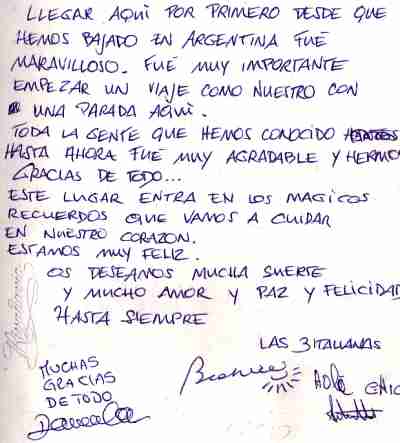 LLEGAR AQUÌ POR PRIMERO DESDE QUE
HEMOS BAJADO EN ARGENTINA FUÉ
MARAVILLOSO. FUÉ MUY IMPORTANTE
EMPEZAR UN VIAJE COMO NUESTRO CON
UNA PARADA AQUÌ.
TODA LA GENTE QUE HEMOS CONOCIDO
HASTA AHORA FUÉ MUY AGRADABLE Y HERMO
GRACIAS DE TODO...
ESTE LUGAR ENTRA EN LOS MAGICOS
RECUERDOS QUE VAMOS A CUIDAR
EN NUESTRO CORAZON.
ESTAMOS MUY FELIZ.
OS DESEAMOS MUCHA SUERTE
Y MUCHO AMOR Y PAZ Y FELICIDAD
HASTA SIEMPRE
LAS 3 ITALIANAS
MUCHAS
GRACIAS
DE TODO